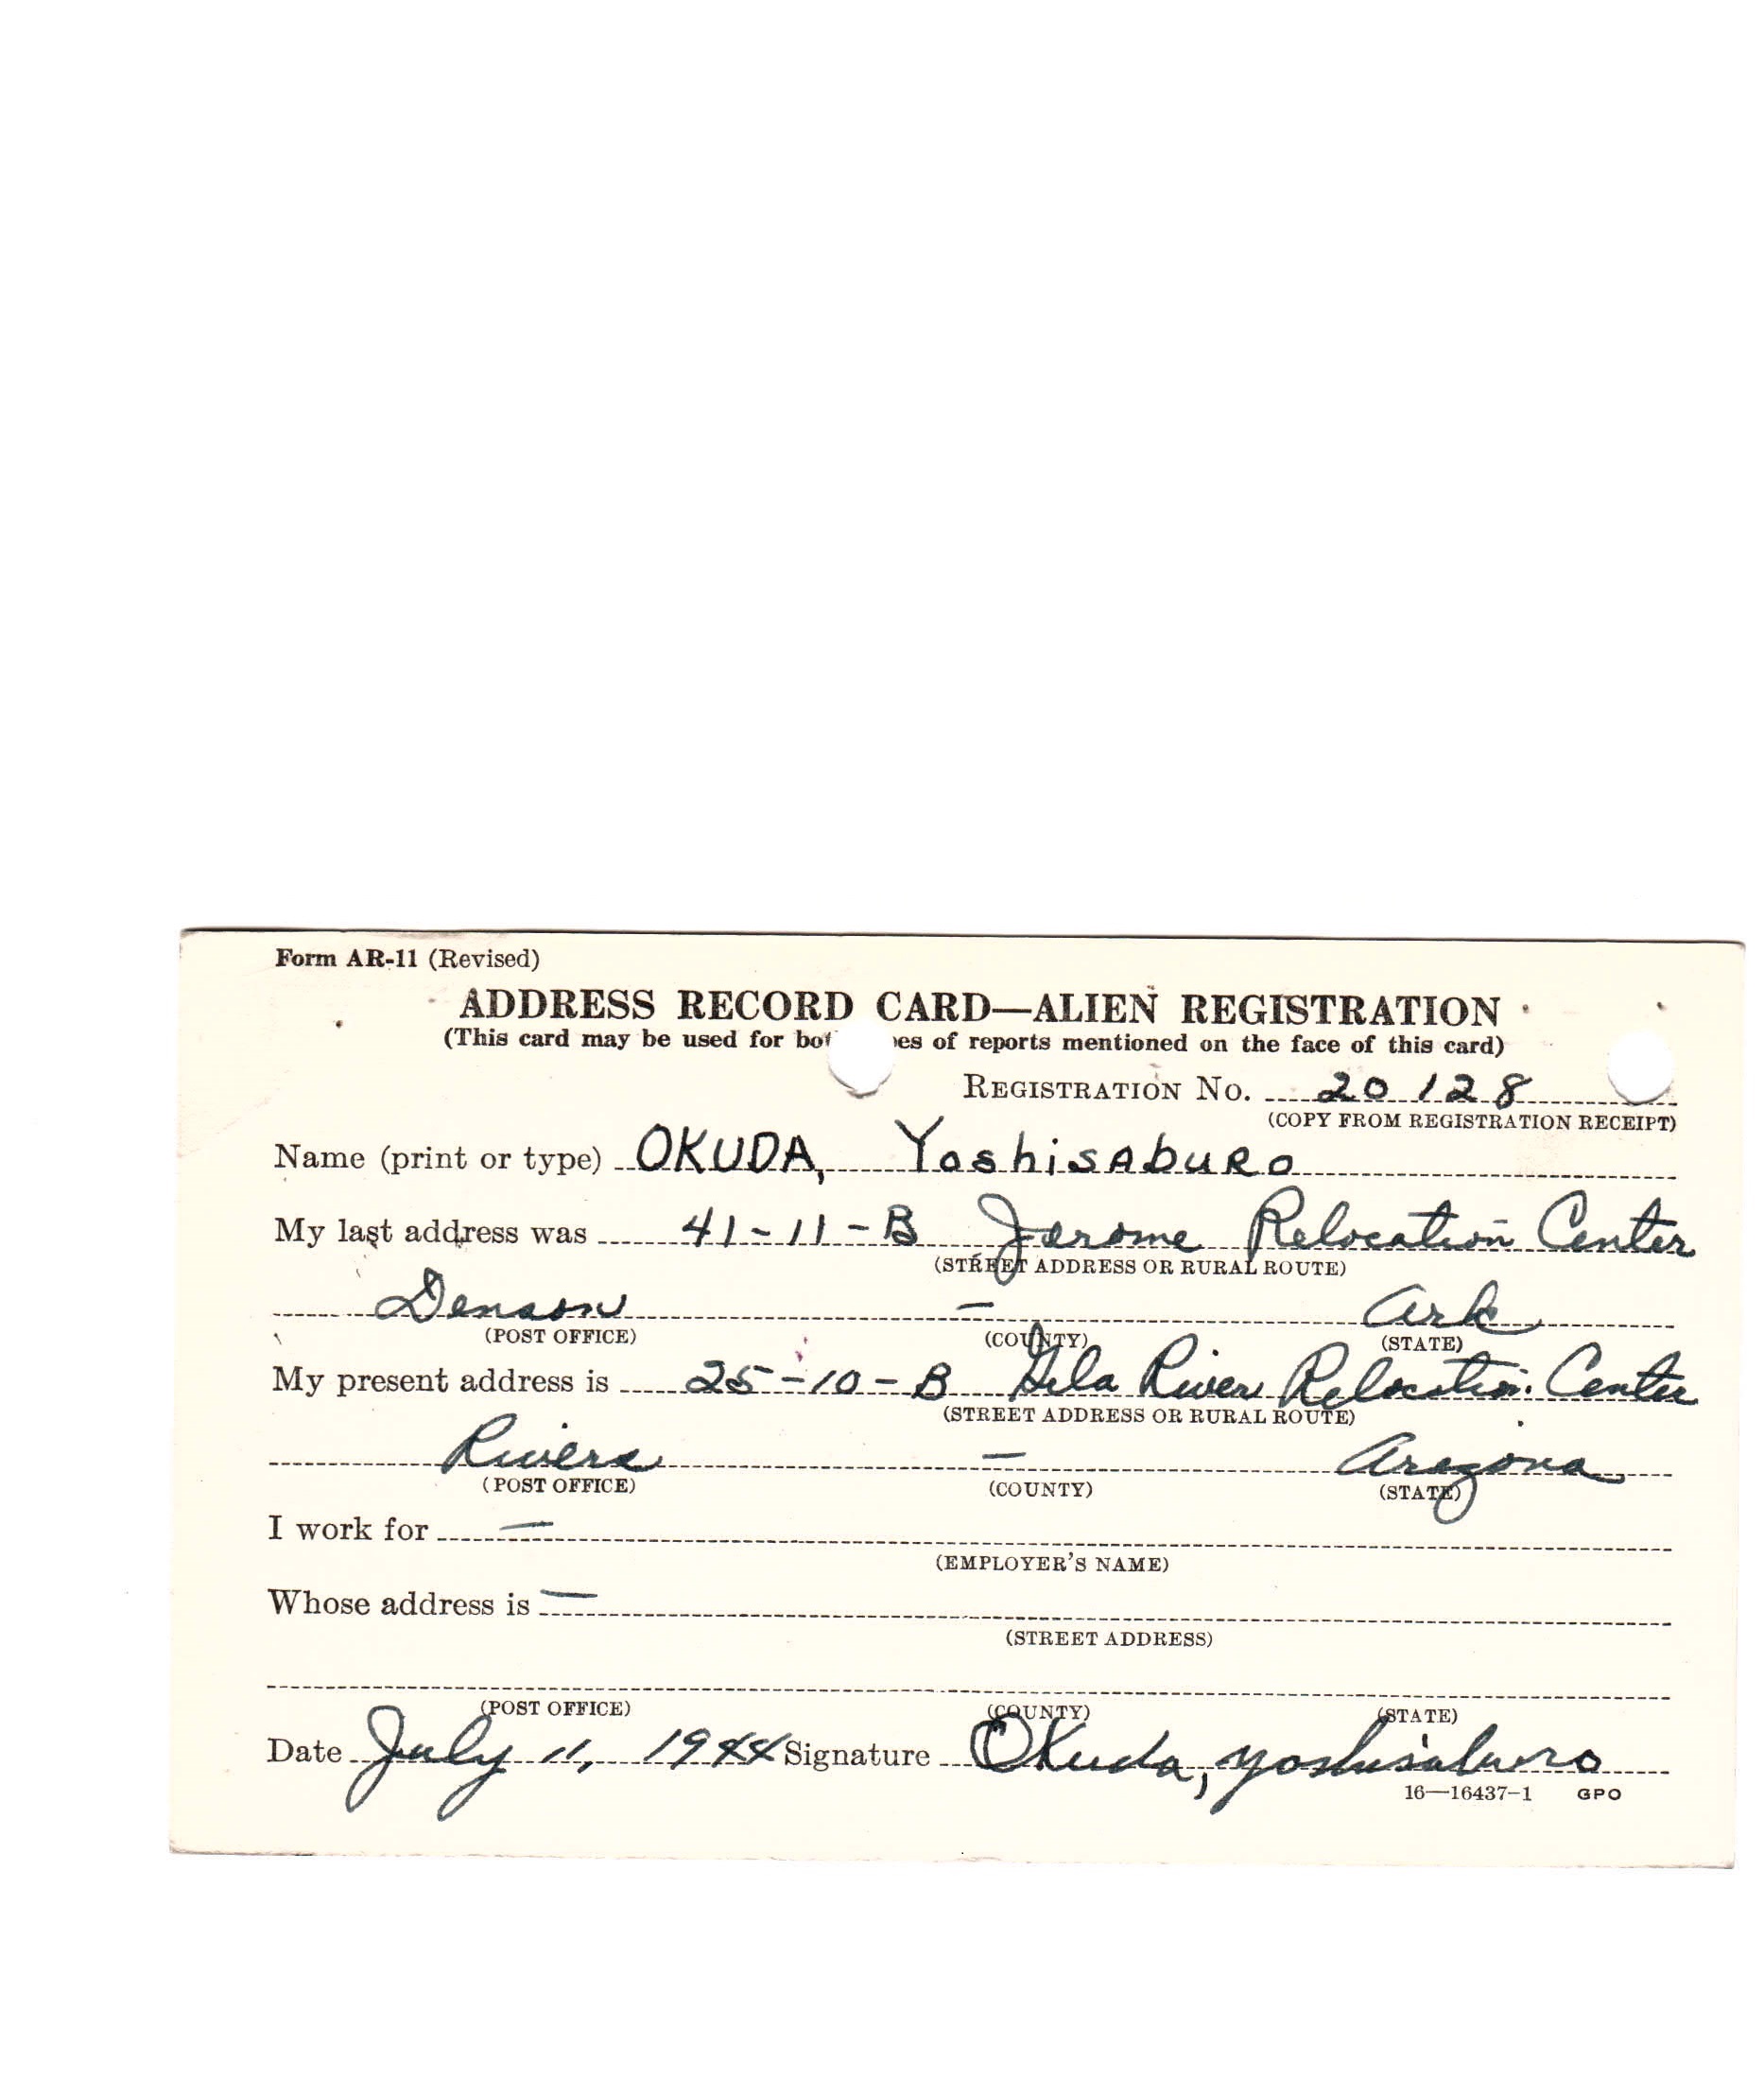 Form AR-11 (Revised)
ADDRESS RECORD CARD—ALIEN REGISTRATION
(This card may be used for bot  es of reports mentioned on the face of this card)
REGISTRATION No. 20128
(COPY FROM REGISTRATION RECEIPT)
Name (print or type) OKUDA, Yoshisaburo
My last address was 41-11-B Jerome Relocation Center
(STREET ADDRESS OR RURAL ROUTE)
Denson – Ark
(POST OFFICE) (COUNTY) (STATE)
My present address is 25-10-B Gila River Relocation Center
(STREET ADDRESS OR RURAL ROUTE)
Rivers – Arizona
(POST OFFICE) (COUNTY) (STATE)
I work for –
(EMPLOYER'S NAME)
Whose address is –
(STREET ADDRESS)
(POST OFFICE) (COUNTY) (STATE)
Date July 11, 1944 Signature Okuda, Yoshisaburo
16—16437-1 GPO